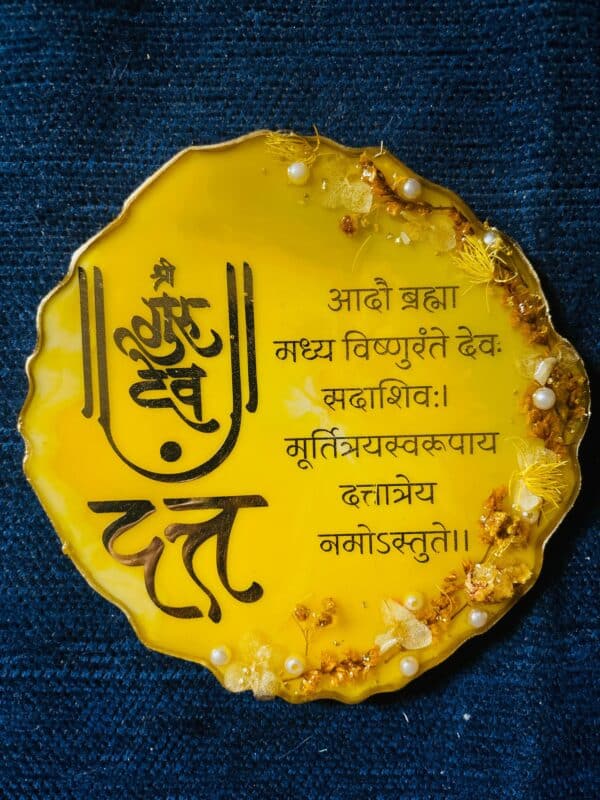 श्री
गुरु
देव
दत्त
आदौ ब्रह्मा
मध्य विष्णुरंते देवः
सदाशिवः।
मूर्तित्रयस्वरूपाय
दत्तात्रेय
नमोऽस्तुते।।